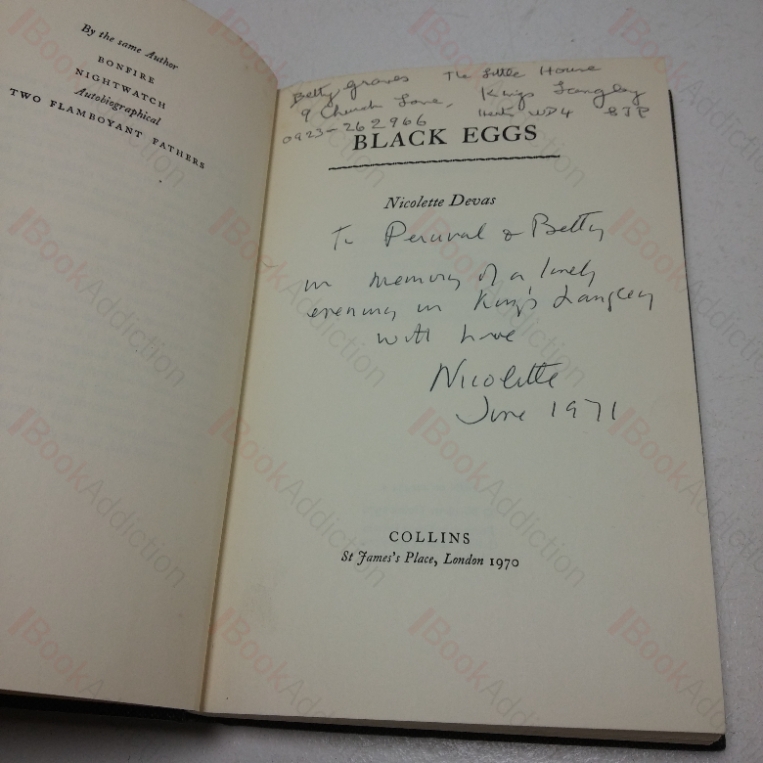 By the same Author
BONFIRE
NIGHTWATCH
Autobiographical
TWO FLAMBOYANT FATHERS
Betty Graves The Little House
9 Church Lane, Kings Langley
0923-262966 Herts WD4 8JP
BLACK EGGS
Nicolette Devas
To Percival & Betty
in memory of a lovely
evening in King's Langley
with love
Nicolette
June 1971
COLLINS
St James's Place, London 1970
BookAddiction